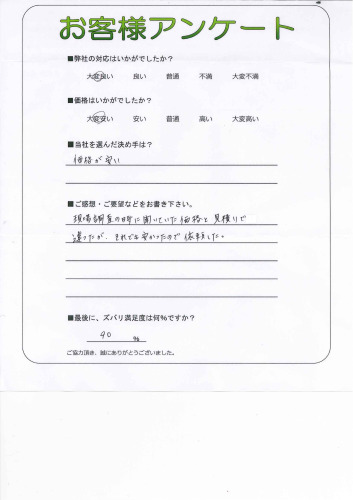 お客様アンケート
■弊社の対応はいかがでしたか?
大変良い 良い 普通 不満 大変不満
■価格はいかがでしたか?
大変安い 安い 普通 高い 大変高い
■当社を選んだ決め手は?
価格が安い
■ご感想・ご要望などをお書き下さい。
現場調査の時に聞いていた価格と見積りで
違ったが、それでも安かったので依頼した。
■最後に、ズバリ満足度は何%ですか?
90 %
ご協力頂き、誠にありがとうございました。